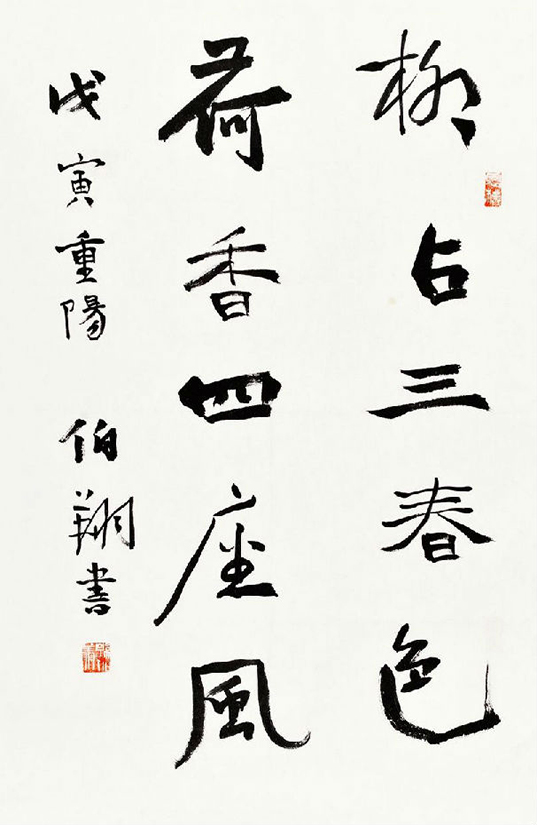 柳占三春色
荷香四座風
戊寅重陽 伯翔書